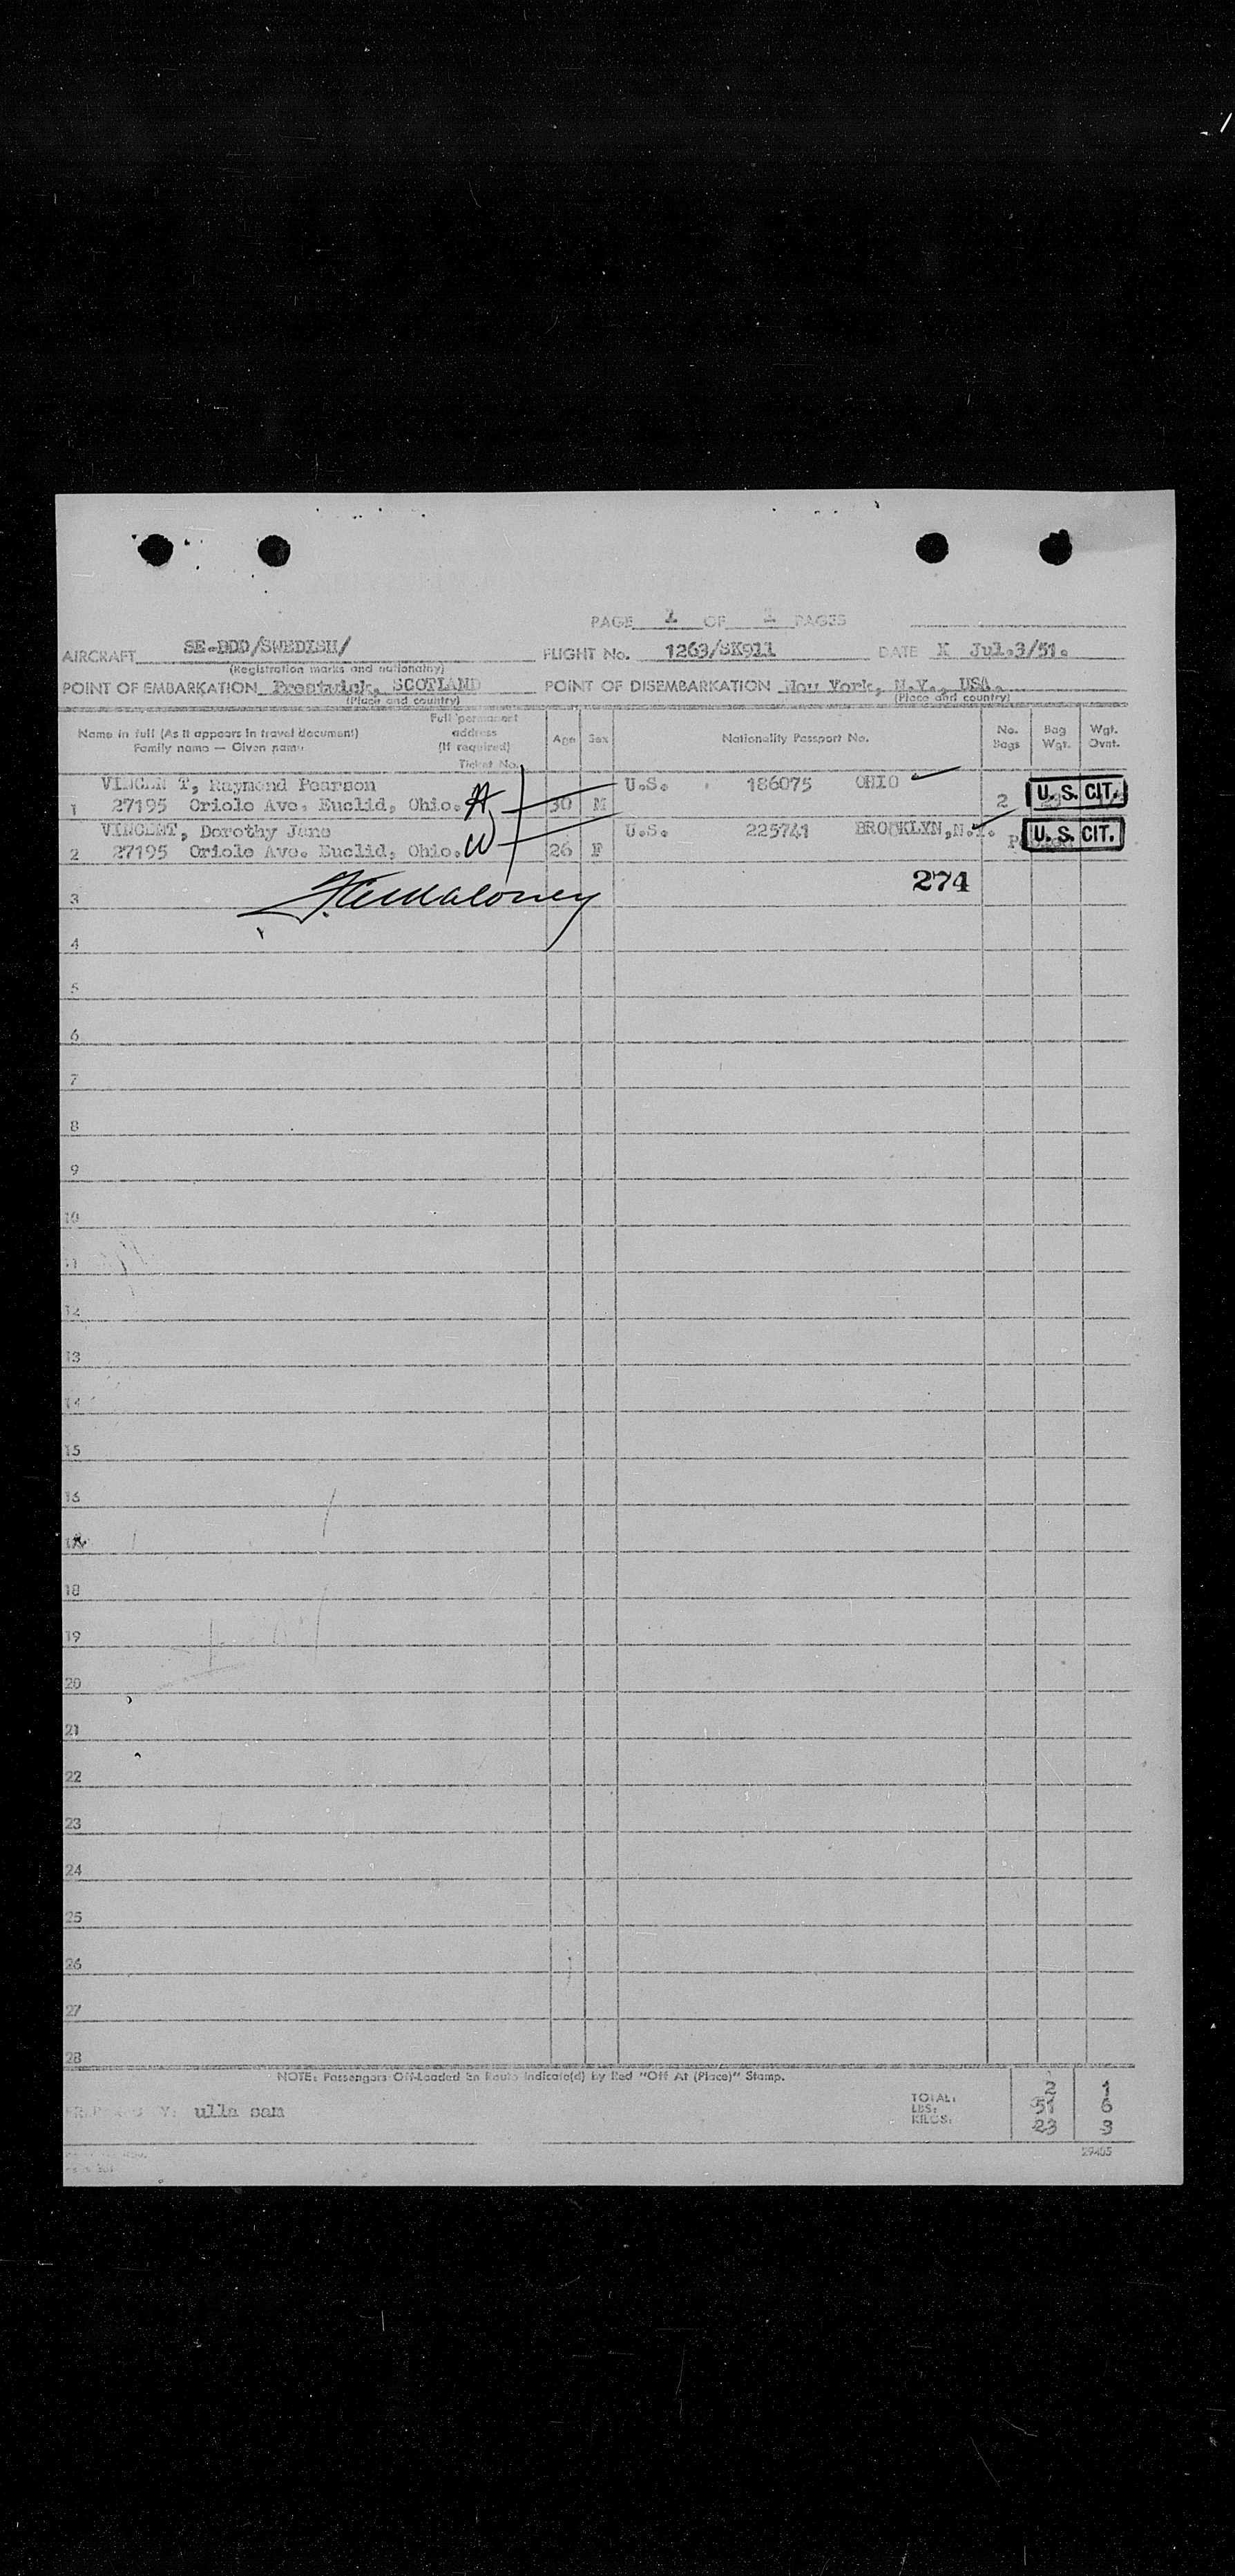 PAGE 1 OF 1 PAGES
AIRCRAFT SE-BDD/SWEDISH/ FLIGHT No. 1263/SK911 DATE X Jul.3/51.
(Registration marks and nationality)
POINT OF EMBARKATION Prestwick, SCOTLAND POINT OF DISEMBARKATION New York, N.Y., USA.
(Place and country) (Place and country)
Name in full (As it appears in travel document)
Family name — Given name
Full permanent
address
(If required)
Ticket No.
Age Sex Nationality Passport No. No. Bags Bag Wgt. Wgt. Ovnt.
VINCEN T, Raymond Pearson U.S. 186075 OHIO
1 27195 Oriole Ave. Euclid, Ohio. 30 M 2 U. S. CIT.
VINCENT, Dorothy Jane U.S. 225741 BROOKLYN, N.Y.
2 27195 Oriole Ave. Euclid, Ohio. W 26 F U. S. CIT.
274
3 Maloney
4
5
6
7
8
9
10
11
12
13
14
15
16
18
19
20
21
22
23
24
25
26
27
28
NOTE: Passengers Off-Loaded En Route Indicate(d) by Red "Off At (Place)" Stamp.
TOTAL: 2 1
PREPARED BY: ulla sam LBS: 51 6
KILOS: 23 3
29405